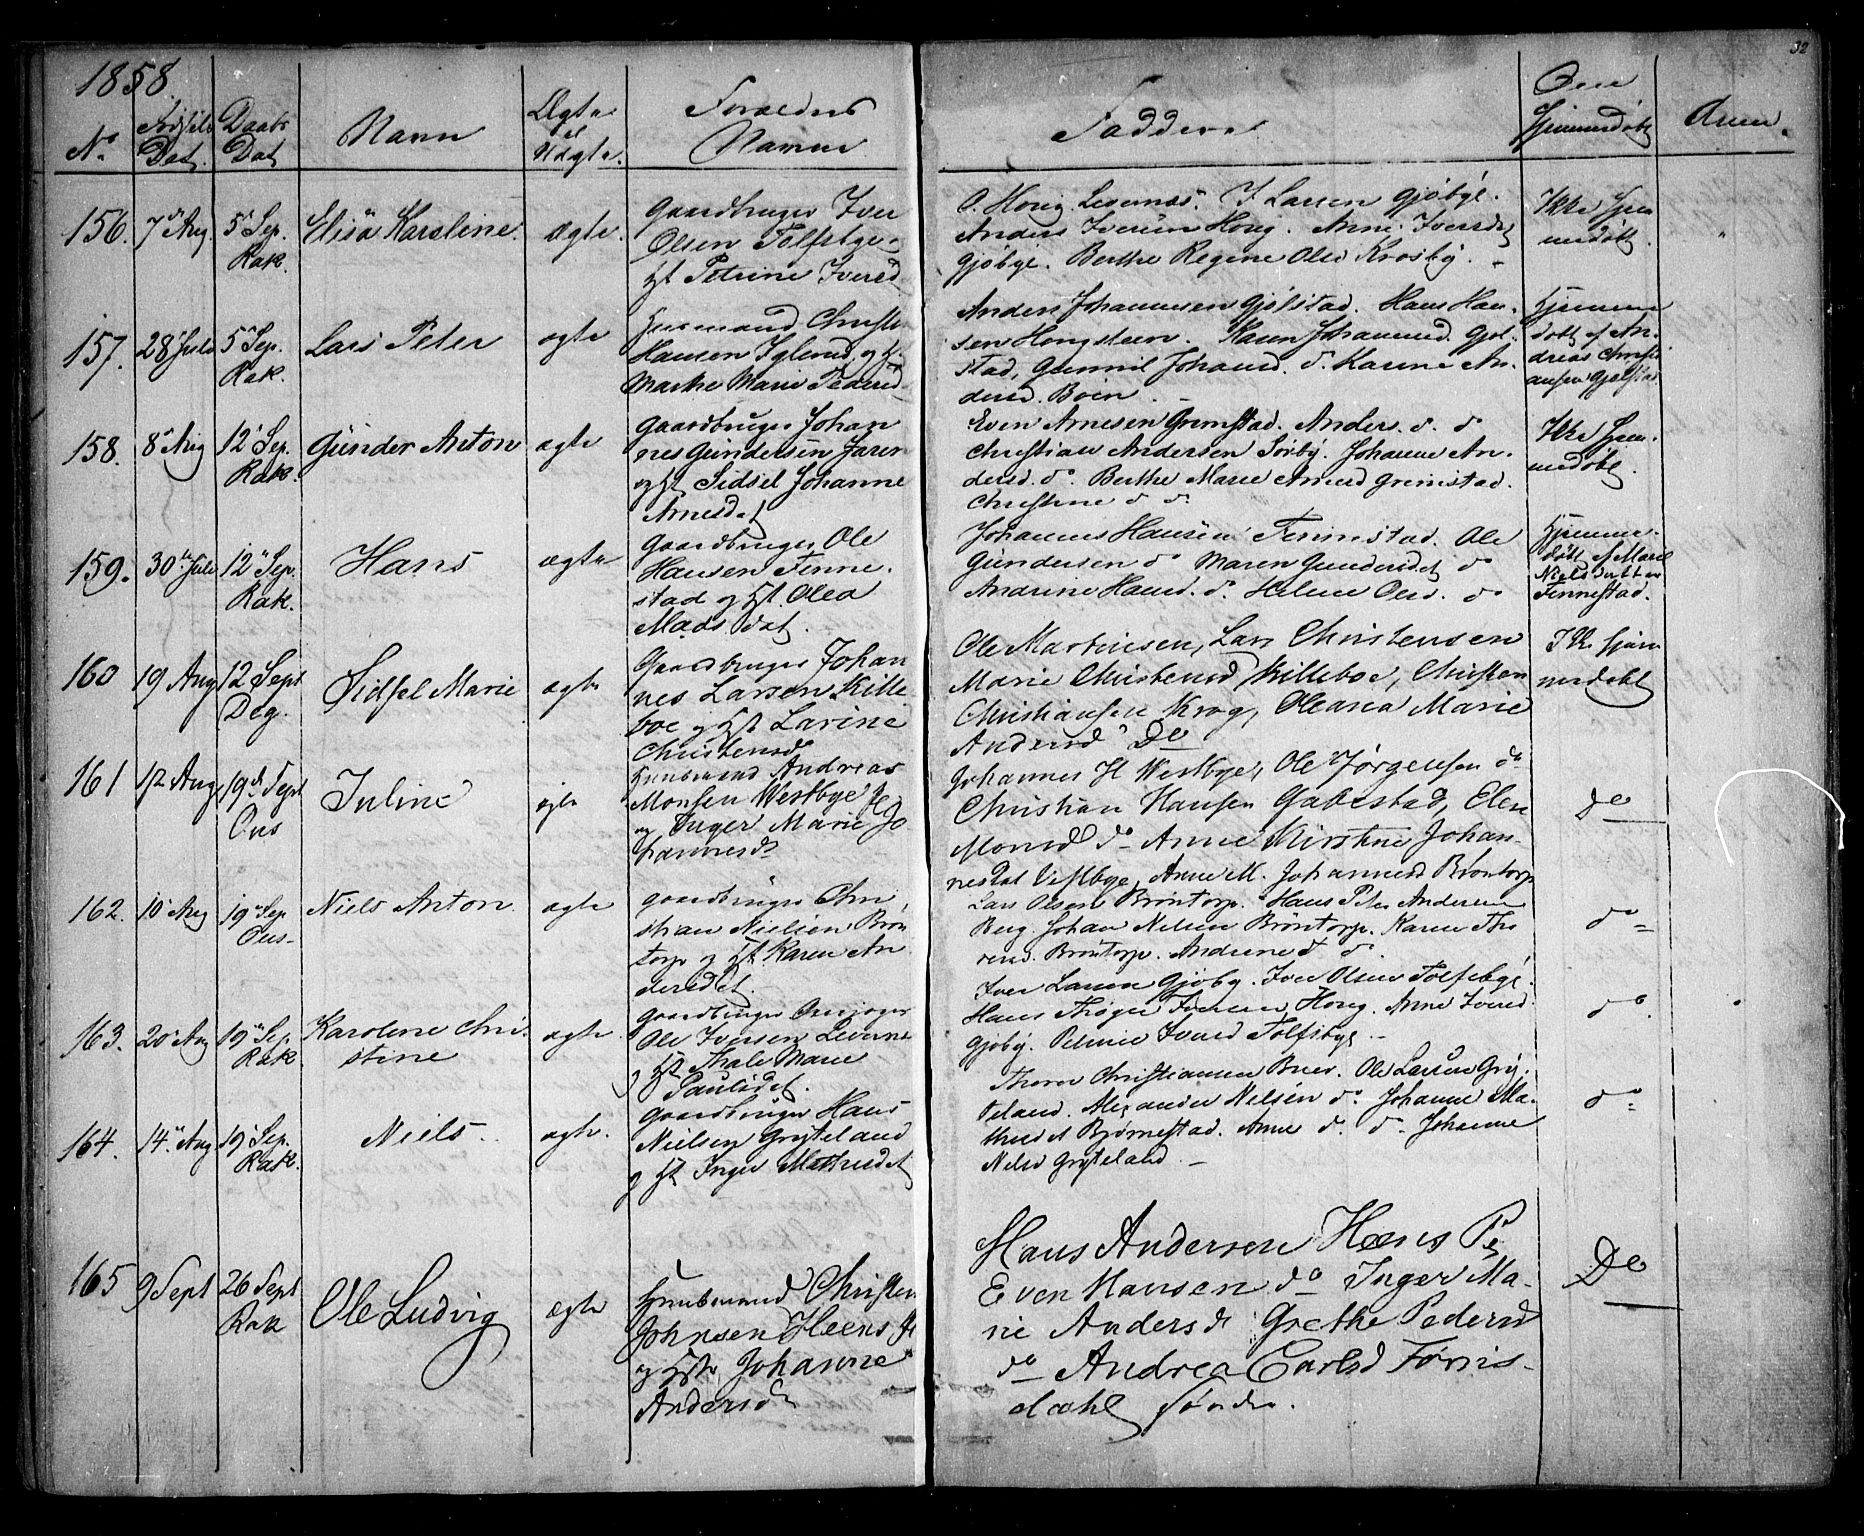 32
1858.
No. Fødsels Dat. Daabs Dat Navn Ægte el Uægte. Forældres Navne Faddere Om Hjemmedøbt Anm.
156. 7 Aug. 5 Sep. Rak. Elisa Karoline. ægte.
Gaardbruger Iver
Olsen Tolfsbye
Petrine Iversd
O. Houg I. Larsen Gjøbye.
Anders Iversen Houg. Anne Iversd
Gjøbye. Berthe Regine Olsd Krosby.
Ikke Hjem
medøbt.
157. 28 Juli 5 Sep. Rak. Lars Peter ægte
Huusmand Christen
Hansen Iglerud og H.
Marthe Marie Pedersd
Anders Johannesen Gjølstad. Hans Han-
sen Hougsteen. Karen Johannesd. Gjøl-
stad, Gunnil Johansd. do. Karine An-
dersd. Boien.
Hjemme
døbt af An-
dreas Christi
ansen Gjølstad
158. 8 Aug 12 Sep. Rak. Gunder Anton ægte
Gaardbruger Johan
nes Gundersen Jaren
og H. Sidsel Johanne
Arnesdat
Even Arnesen Grimstad. Anders. do. do
Christian Andersen Sørby. Johanne An-
dersd. do. Berthe Marie Arnesd Grimstad.
Christine do do
Ikke Hjem-
medøbt.
159. 30 Juli 12 Sep. Rak. Hans ægte
Gaardbruger Ole
Hansen Finne-
stad og H. Olea
Mads dat.
Johannes Hansen Finnestad. Ole
Gundersen do Maren Gundersdat do
Andrine Hansd. do. Helene Olsd. do
Hjemme-
døbt af Marie
Nielsdatter
Finnestad.
160 19 Aug 12 Sept Deg. Sidsel Marie ægte
Gaardbruger Johan
nes Larsen Kille
boe og Hst Larine
Christensd
Ole Martinsen, Lars Christensen
Marie Christensd Killeboe, Christian
Christiansen Krog, Oleana Marie
Andersd Do
Ikke hjem
medøbt
161 12 Aug 19 Sept Ous Juline ægte
Huusmand Andreas
Monsen Westbye
og Inger Marie Jo
hannesd
Johannes H Westbye, Ole Jørgensen do
Christian Hansen Gabestad, Elen
Monsd do Anne Kirstine Johan-
nesdat Vestbye, Anne M. Johannesd Brøntorp
Do
162. 10 Aug 19 Sep Ous. Niels Anton. ægte
Gaardbruger Chri
stian Nielsen Brøn
torp og H. Karen An
dersdat.
Lars Olsen Brøntorp. Hans Peter Andersen
Berg. Johan Nelsen Brøntorp. Karen Tho
resd. Brøntorp. Andrine do do
do
163. 20 Aug 19 Sep. Rak. Karoline Chri-
stine ægte
Gaardbruger
Ole Iversen
og H. Thale Marie
Paulsdat.
Iver Larsen Gjøby. Iver Olsen Tolfsbye.
Hans Thøger Iversen Houg. Anne Iversd
Gjøby. Petrine Iversd Tolfsbye.
do
164. 14 Aug 19 Sep. Rak. Niels. ægte.
Gaardbruger Hans
Nielsen Gryteland
og H. Inger Mathisdat
Thorer Christiansen Buer. Ole Larsen Gry-
teland. Alexander Nelsen do. Johanne Ma-
thisdat Bjørnestad. Anne do. do. Johanne
Nelsd Gryteland.
do
165 9 Sept 26 Sept Rak Ole Ludvig ægte
Huusmand Christen
Johnsen Heens
og Hst. Johanne
Andersd
Hans Andersen Heens
Even Hansen do Inger Ma-
rie Andersd Grethe Pedersd
do Andrea Carlsd Førris-
dahl søndre.
Do